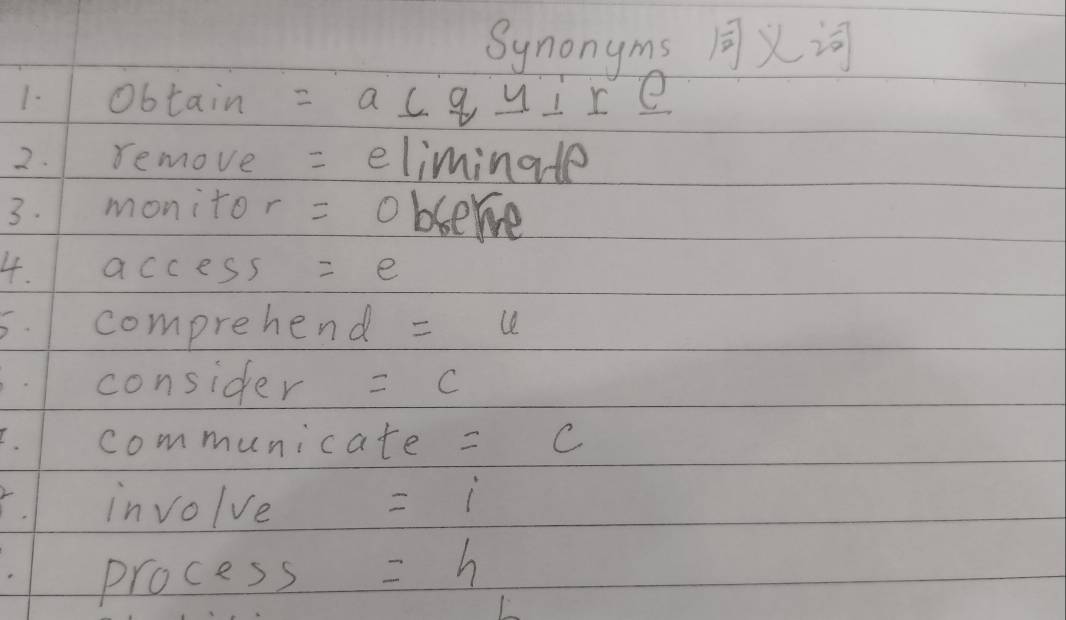 Synonyms 同义词
1. Obtain = acquire
2. remove = eliminate
3. monitor = observe
4. access = e
5. comprehend = u
consider = c
communicate = c
involve = i
process = h